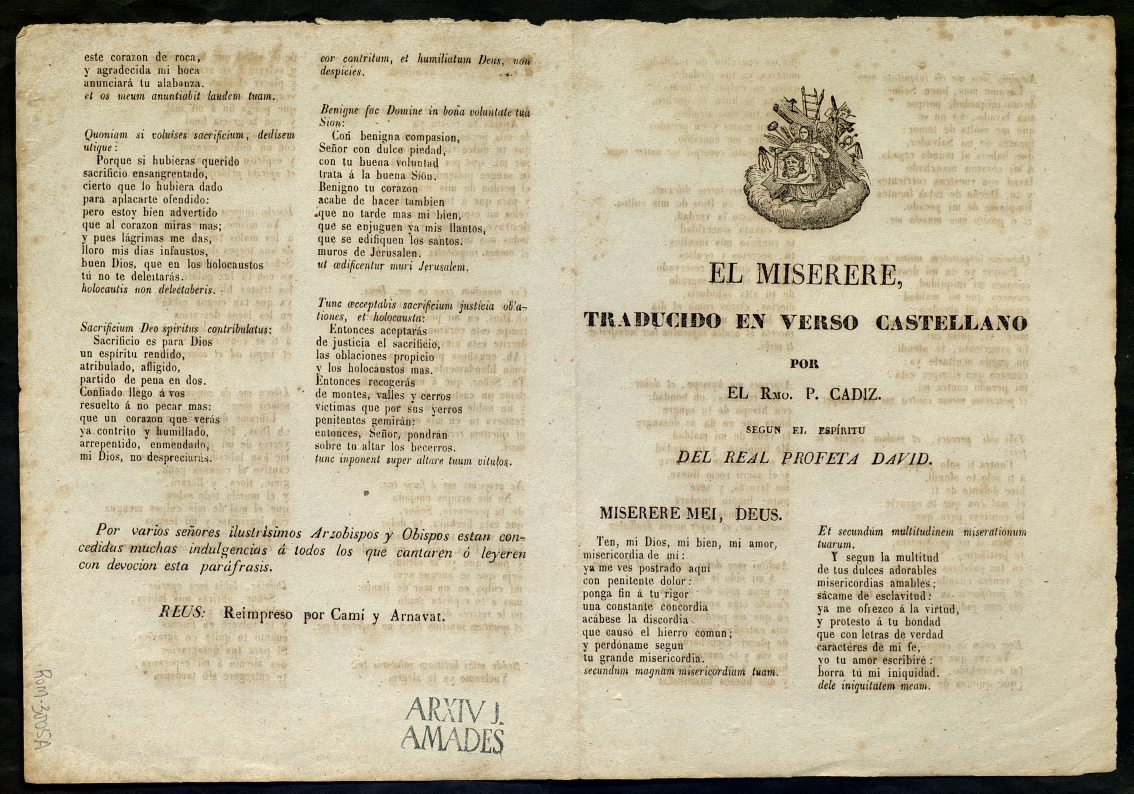 este corazon de roca,
y agradecida mi boca
anunciará tu alabanza.
et os meum anuntiabit laudem tuam.
Quoniam si voluises sacrificium, dedisem
utique:
Porque si hubieras querido
sacrificio ensangrentado,
cierto que lo hubiera dado
para aplacarte ofendido:
pero estoy bien advertido
que al corazon miras mas;
y pues lágrimas me das,
lloro mis dias infaustos,
buen Dios, que en los holocaustos
tú no te deleitarás.
holocautis non delectaberis.
Sacrificium Deo spiritus contribulatus:
Sacrificio es para Dios
un espíritu rendido,
atribulado, afligido,
partido de pena en dos.
Confiado llego á vos
resuelto á no pecar mas:
que un corazon que verás
ya contrito y humillado,
arrepentido, enmendado,
mi Dios, no despreciarás.
cor contritum, et humiliatum Deus, non
despicies.
Benigne fac Domine in bona voluntate tua
Sion:
Con benigna compasion,
Señor con dulce piedad,
con tu buena voluntad
trata á la buena Sion.
Benigno tu corazon
acabe de hacer tambien
que no tarde mas mi bien,
que se enjuguen ya mis llantos,
que se edifiquen los santos.
muros de Jerusalen.
ut œdificentur muri Jerusalem.
Tunc œcceptabis sacrificium justicia obla-
tiones, et holocausta:
Entonces aceptarás
de justicia el sacrificio,
las oblaciones propicio
y los holocaustos mas.
Entonces recogerás
de montes, valles y cerros
victimas que por sus yerros
penitentes gemirán:
entonces, Señor, pondrán
sobre tu altar los becerros.
tunc inponent super altare tuum vitulos.
Por varios señores ilustrísimos Arzobispos y Obispos estan con-
cedidas muchas indulgencias á todos los que cantaren ó leyeren
con devocion esta paráfrasis.
REUS: Reimpreso por Camí y Arnavat.
ARXIV J.
AMADES
ROM-3005A
EL MISERERE,
TRADUCIDO EN VERSO CASTELLANO
POR
EL RMO. P. CADIZ.
SEGUN EL ESPÍRITU
DEL REAL PROFETA DAVID.
MISERERE MEI, DEUS.
Ten, mi Dios, mi bien, mi amor,
misericordia de mi:
ya me ves postrado aquí
con penitente dolor:
ponga fin á tu rigor
una constante concordia
acábese la discordia
que causó el hierro comun;
y perdóname segun
tu grande misericordia.
secundum magnam misericordiam tuam.
Et secundúm multitudinem miserationum
tuarum.
Y segun la multitud
de tus dulces adorables
misericordias amables;
sácame de esclavitud:
ya me ofrezco á la virtud,
y protesto á tu bondad
que con letras de verdad
caractéres de mi fe,
yo tu amor escribiré:
borra tú mi iniquidad.
dele iniquitatem meam.